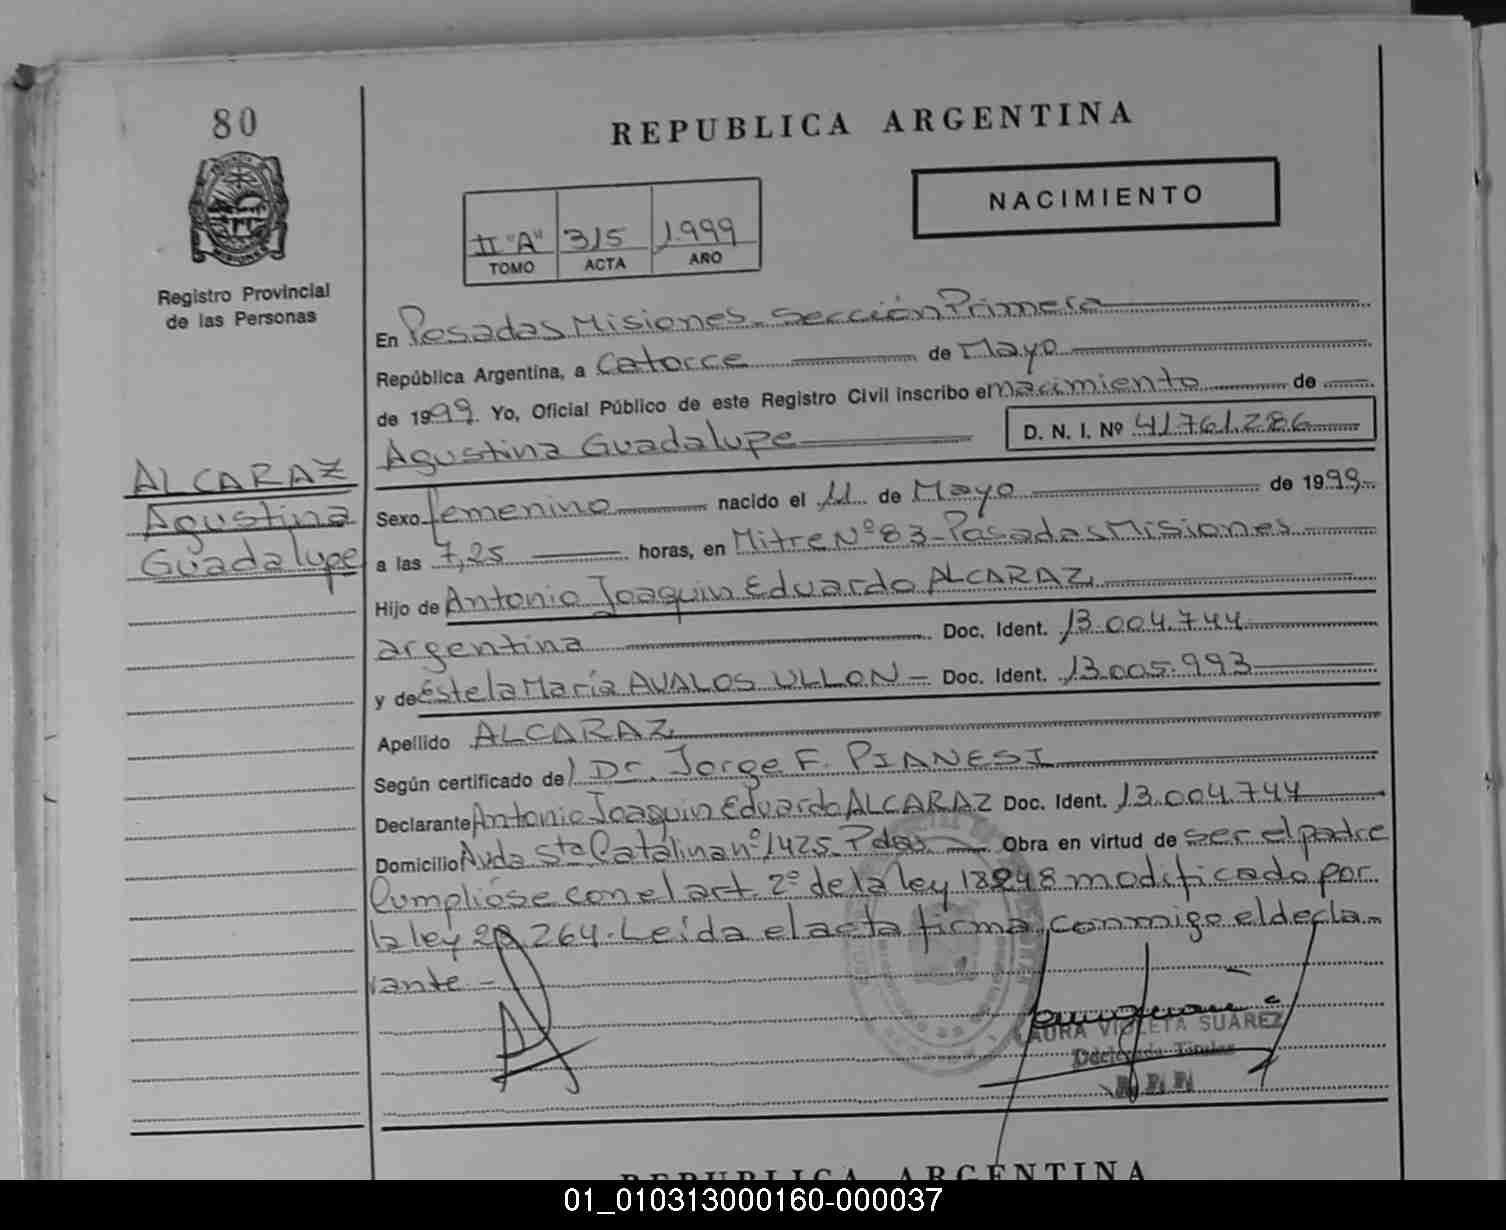 80
REPUBLICA ARGENTINA
NACIMIENTO
II "A" 315 1.999
TOMO ACTA AÑO
Registro Provincial
de las Personas
En Posadas Misiones Sección Primera
República Argentina, a Catorce de Mayo
de 1999. Yo, Oficial Público de este Registro Civil inscribo el nacimiento de
Agustina Guadalupe D. N. I. Nº 41.761.286
ALCARAZ
Agustina
Guadalupe
Sexo femenino nacido el 11 de Mayo de 1999
a las 7,25 horas, en Mitre Nº 83 - Posadas Misiones
Hijo de Antonio Joaquin Eduardo ALCARAZ
argentina Doc. Ident. 13.004.744
y de Estela María AVALOS ULLON - Doc. Ident. 13.005.993
Apellido ALCARAZ
Según certificado del Dr. Jorge F. PIANESI
Declarante Antonio Joaquin Eduardo ALCARAZ Doc. Ident. 13.004.744
Domicilio Avda Sta Catalina nº 1425 Pdas Obra en virtud de ser el padre
Cumplióse con el art. 2º de la ley 18248 modificado por
la ley 20.264. Leída el acta firma conmigo el decla-
rante -
LAURA VIOLETA SUAREZ
Titular
REPUBLICA ARGENTINA
01_010313000160-000037